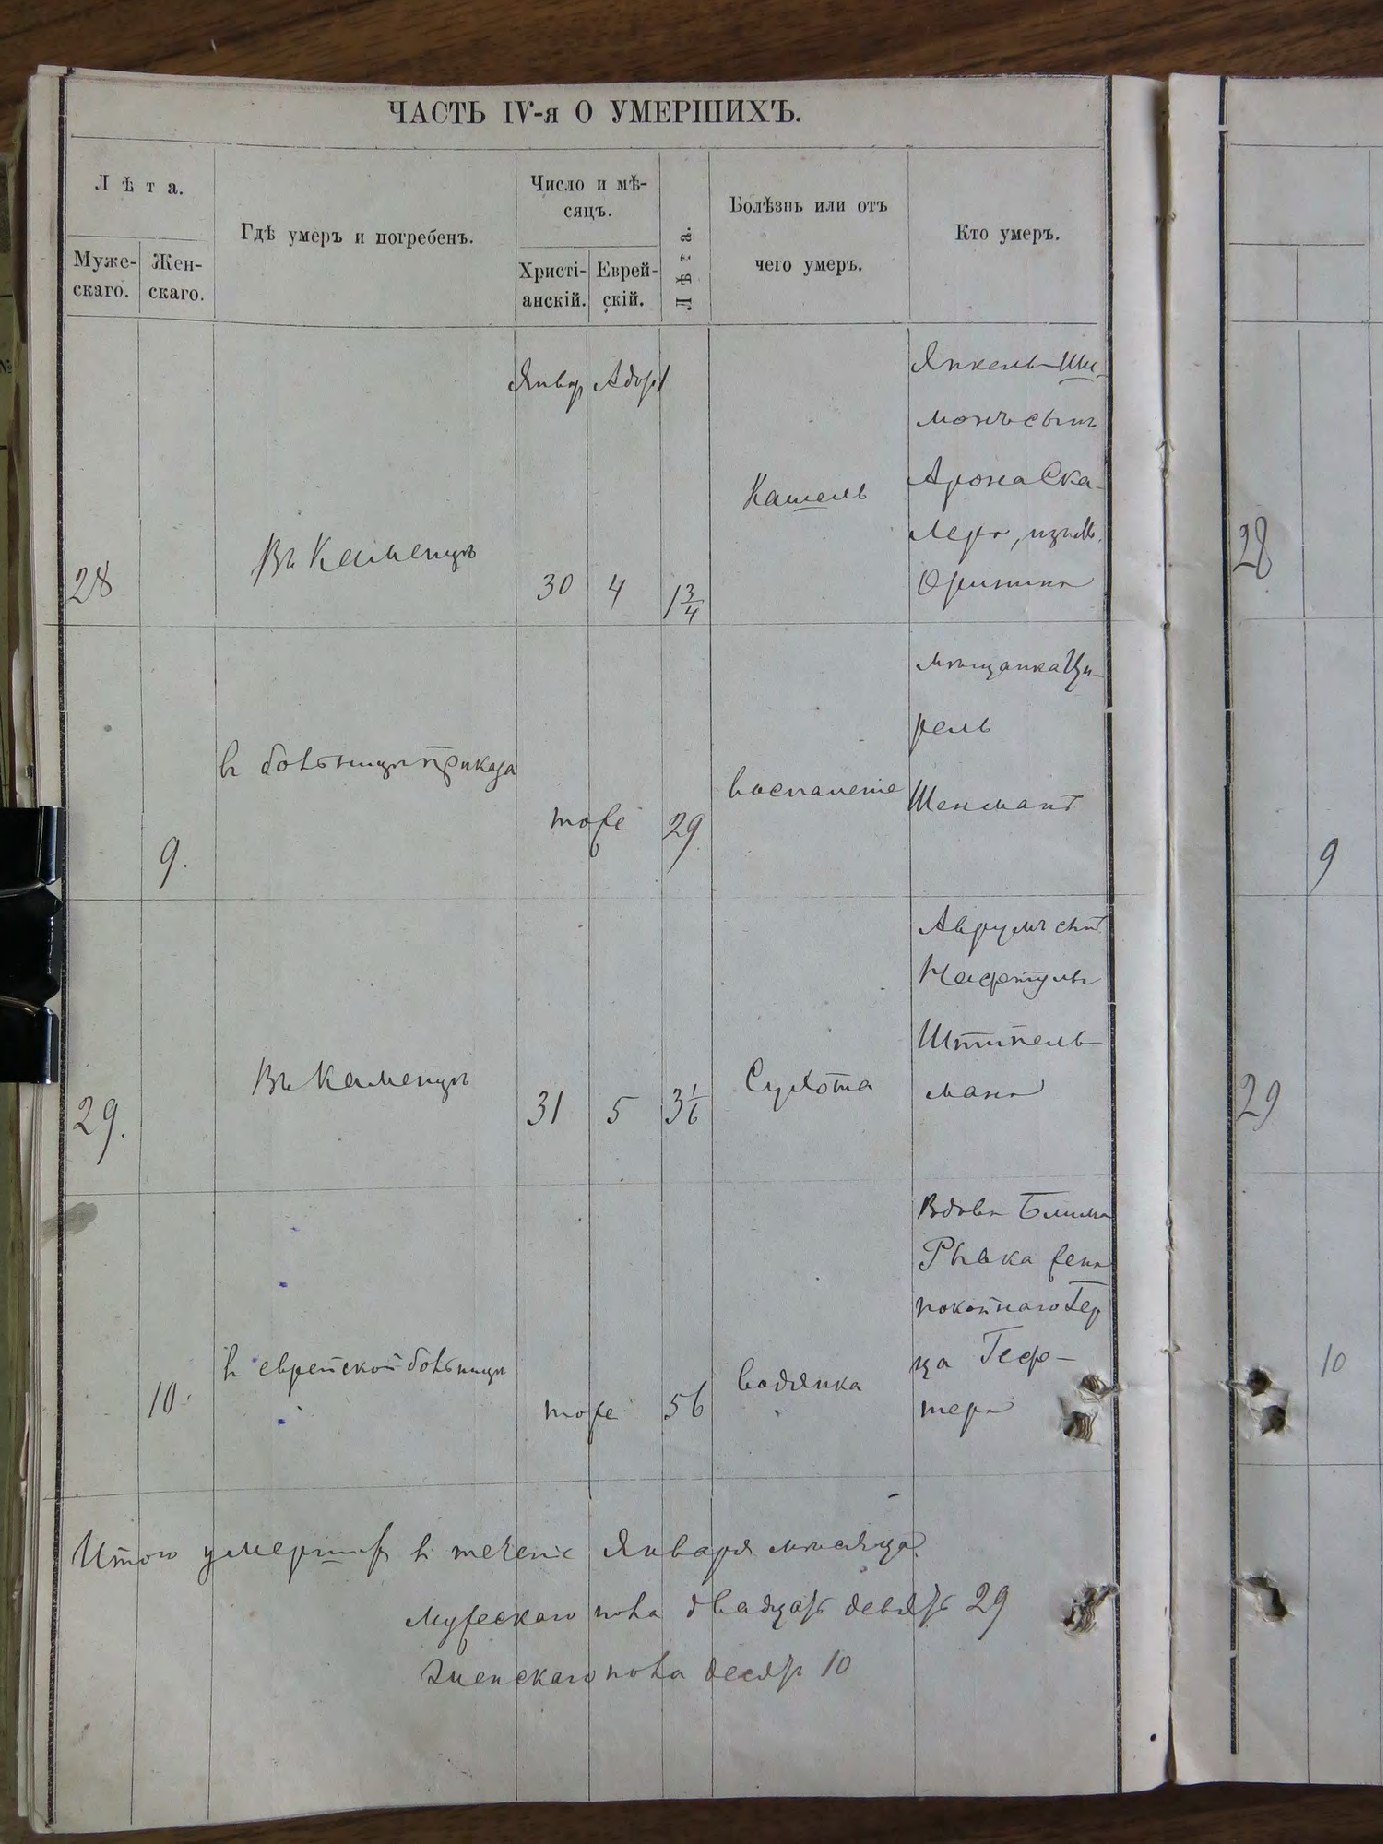 ЧАСТЬ IV-я О УМЕРШИХЪ.
Лѣта.
Муже-
скаго.
Жен-
скаго.
Гдѣ умеръ и погребенъ.
Число и мѣ-
сяцъ.
Христі-
анскій.
Еврей-
скій.
Лѣта.
Болѣзнь или отъ
чего умеръ.
Кто умеръ.
Январ Адор
28
Въ Каменцѣ
30
4
1 3/4
Кашель
Янкель Ши-
монъ сынъ
Арона Ска-
лера, изъ
Оринина
28
9.
в больницѣ приказа
тоже
29
воспаленіе
мѣщанка Ци-
рель
Шенмант
9
29.
Въ Каменцѣ
31
5
3 1/6
Сухота
Аврумъ сын
Нафтулы
Штипель-
мана
29
10.
в еврейской больницѣ
тоже
56
водянка
Вдова Блима
Рывка жена
покойнаго Гер
ца Геф-
тера
10
Итого умерших в теченіе Января мѣсяца
Мужескаго пола двадцать девять 29
Женскаго пола десять 10